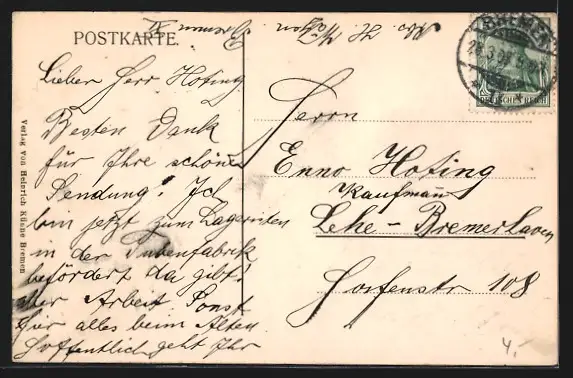 POSTKARTE.
Lieber Herr Hoting
Besten Dank
für Ihre schöne
Sendung! Ich
bin jetzt zum Lageristen
in der Tubenfabrik
befördert da gibt's
aber Arbeit Sonst
für alles beim Alten
Hoffentlich geht Ihr
Bremen
BREMEN
DEUTSCHES REICH
Herrn
Enno Hoting
Kaufmann
Lehe - Bremerhaven
Hafenstr 108
4.-
Verlag von Heinrich Kühne Bremen